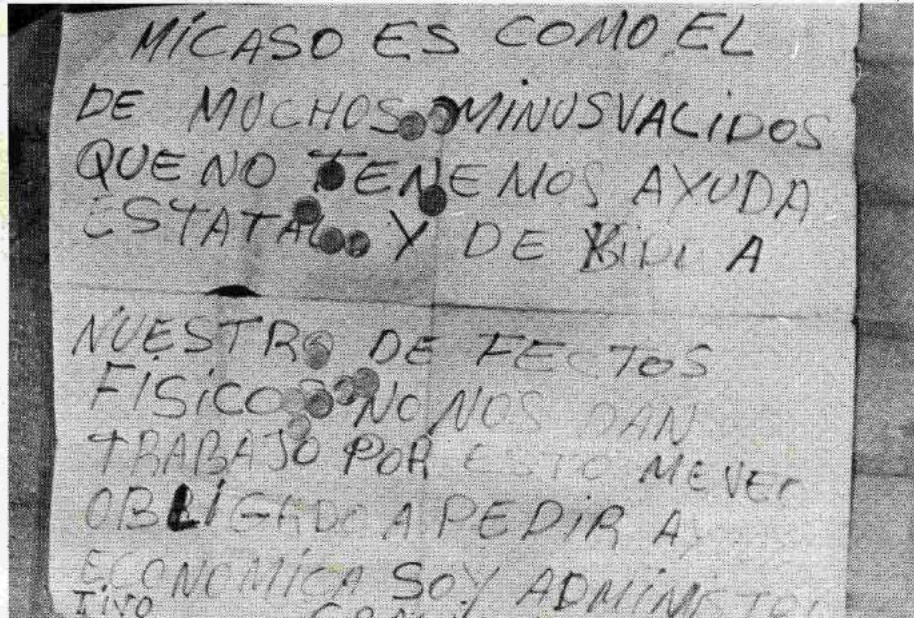 MI CASO ES COMO EL
DE MUCHOS MINUSVALIDOS
QUE NO TENEMOS AYUDA
ESTATAL Y DE A
NUESTRO DE FECTOS
FISICO NO NOS DAN
TRABAJO POR ESTO ME VEO
OBLIGADO A PEDIR
ECONOMICA SOY